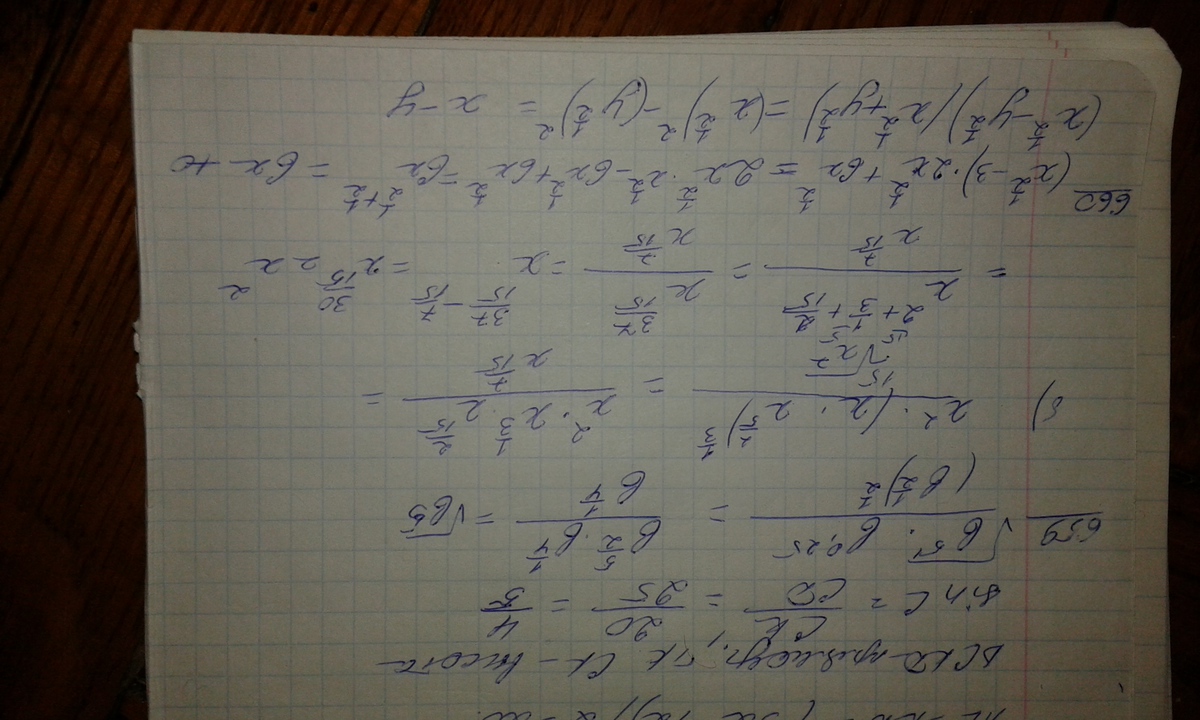 ΔCKD - прямоуг., т.к. CK - высота
sin C = CK/CD = 20/25 = 4/5
659 √(b⁵) · b^0,25 / (b^(1/2))^(1/2) = b^(5/2) · b^(1/4) / b^(1/4) = √b⁵
б) x² · (x · x^(2/5))^(1/3) / ¹⁵√(x⁷) = x² · x^(1/3) · x^(2/15) / x^(7/15) =
= x^(2+1/3+2/15) / x^(7/15) = x^(37/15) / x^(7/15) = x^(37/15 - 7/15) = x^(30/15) = x²
660 (x^(1/2) - 3) · 2x^(1/2) + 6x^(1/2) = 2x^(1/2) · x^(1/2) - 6x^(1/2) + 6x^(1/2) = 6x^(1/2+1/2) = 6x
(x^(1/2) - y^(1/2))(x^(1/2) + y^(1/2)) = (x^(1/2))² - (y^(1/2))² = x - y